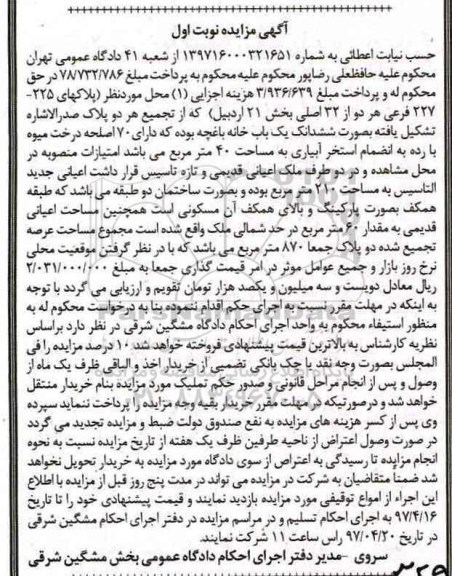 آگهی مزایده نوبت اول
حسب نیابت اعطائی به شماره ۱۳۹۷۱۶۰۰۰۳۲۱۶۵۱ از شعبه ۴۱ دادگاه عمومی تهران
محکوم علیه حافظعلی رضاپور محکوم علیه محکوم به پرداخت مبلغ ۷۸/۷۳۲/۷۸۶ در حق
محکوم له و پرداخت مبلغ ۳/۹۳۶/۶۳۹ هزینه اجرایی (۱) محل موردنظر (پلاکهای ۲۲۵-
۲۲۷ فرعی هر دو از ۳۲ اصلی بخش ۲۱ اردبیل) که از تجمیع هر دو پلاک صدرالاشاره
تشکیل یافته بصورت ششدانگ یک باب خانه باغچه بوده که دارای ۷۰ اصلحه درخت میوه
با رده به انضمام استخر آبیاری به مساحت ۴۰ متر مربع می باشد امتیازات منصوبه در
محل مشاهده و در دو طرف ملک اعیانی قدیمی و تازه تاسیس قرار داشت اعیانی جدید
التاسیس به مساحت ۲۱۰ متر مربع بوده و بصورت ساختمان دو طبقه می باشد که طبقه
همکف بصورت پارکینگ و بالای همکف آن مسکونی است همچنین مساحت اعیانی
قدیمی به مقدار ۶۰ متر مربع در حد شمالی ملک واقع شده است مجموع مساحت عرصه
تجمیع شده دو پلاک جمعا ۸۷۰ متر مربع می باشد که با در نظر گرفتن موقعیت محلی
نرخ روز بازار و جمیع عوامل موثر در امر قیمت گذاری جمعا به مبلغ ۲/۰۳۱/۰۰۰/۰۰۰
ریال معادل دویست و سه میلیون و یکصد هزار تومان تقویم و ارزیابی می گردد با توجه
به اینکه در مهلت مقرر نسبت به اجرای حکم اقدام ننموده بنا به درخواست محکوم له به
منظور استیفاء محکوم به واحد اجرای احکام دادگاه مشگین شرقی در نظر دارد براساس
نظریه کارشناس به بالاترین قیمت پیشنهادی فروخته خواهد شد ۱۰ درصد مزایده را فی
المجلس بصورت وجه نقد یا چک بانکی تضمینی از خریدار اخذ و الباقی ظرف یک ماه از
وصول و پس از انجام مراحل قانونی و صدور حکم تملیک مورد مزایده بنام خریدار منتقل
خواهد شد و درصورتیکه در مهلت مقرر خریدار بقیه وجه مزایده را پرداخت ننماید سپرده
وی پس از کسر هزینه های مزایده به نفع صندوق دولت ضبط و مزایده تجدید می گردد
در صورت وصول اعتراض از ناحیه طرفین ظرف یک هفته از تاریخ مزایده نسبت به نحوه
انجام مزایده تا رسیدگی به اعتراض از سوی دادگاه مورد مزایده به خریدار تحویل نخواهد
شد ضمنا متقاضیان به شرکت در مزایده می تواند در مدت پنج روز قبل از مزایده با اطلاع
این اجراء از امواع توقیفی مورد مزایده بازدید نمایند و قیمت پیشنهادی خود را تا تاریخ
۹۷/۴/۱۶ به اجرای احکام تسلیم و در مراسم مزایده در دفتر اجرای احکام مشگین شرقی
در تاریخ ۹۷/۰۴/۲۰ راس ساعت ۱۱ شرکت نمایند.
سروی -مدیر دفتر اجرای احکام دادگاه عمومی بخش مشگین شرقی
۳۲۹